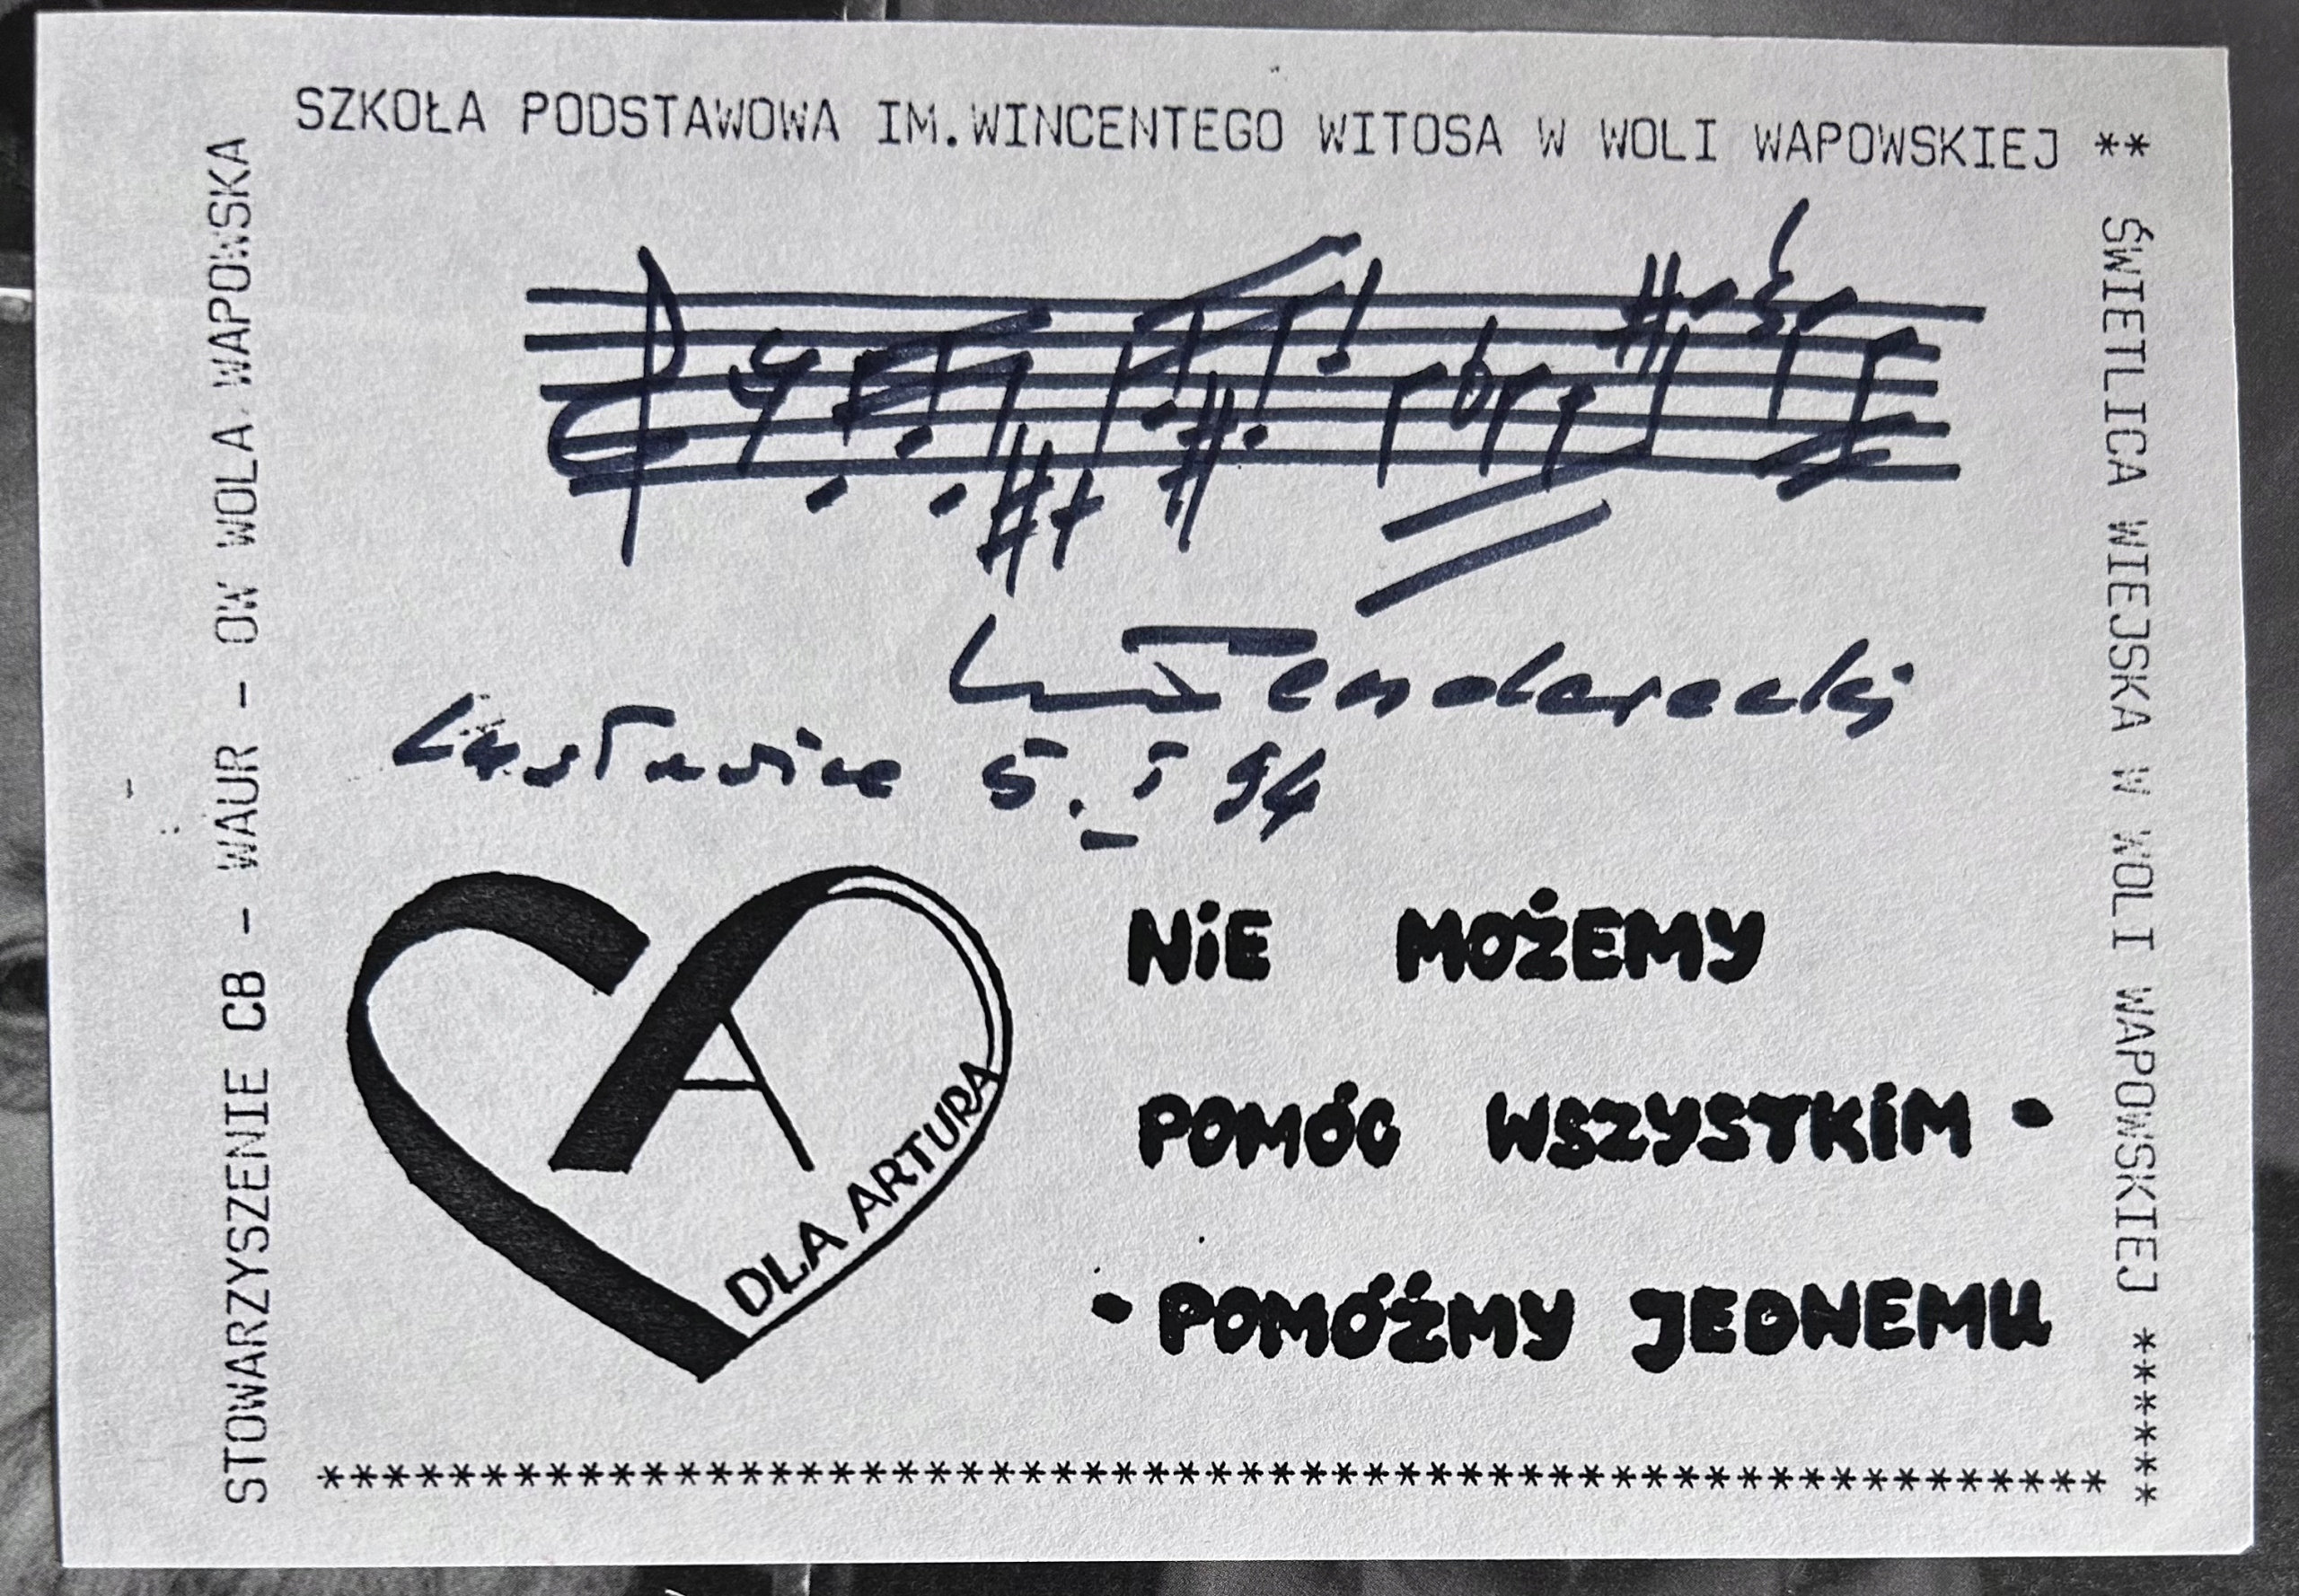 SZKOŁA PODSTAWOWA IM.WINCENTEGO WITOSA W WOLI WAPOWSKIEJ **
ŚWIETLICA WIEJSKA W WOLI WAPOWSKIEJ ******
STOWARZYSZENIE CB - WAUR - OW WOLA WAPOWSKA
Penderecki
Lusławice 5.I 94
A
DLA ARTURA
NiE MOŻEMY
POMÓC WSZYSTKiM -
- POMÓŻMY JEDNEMU
*********************************************************